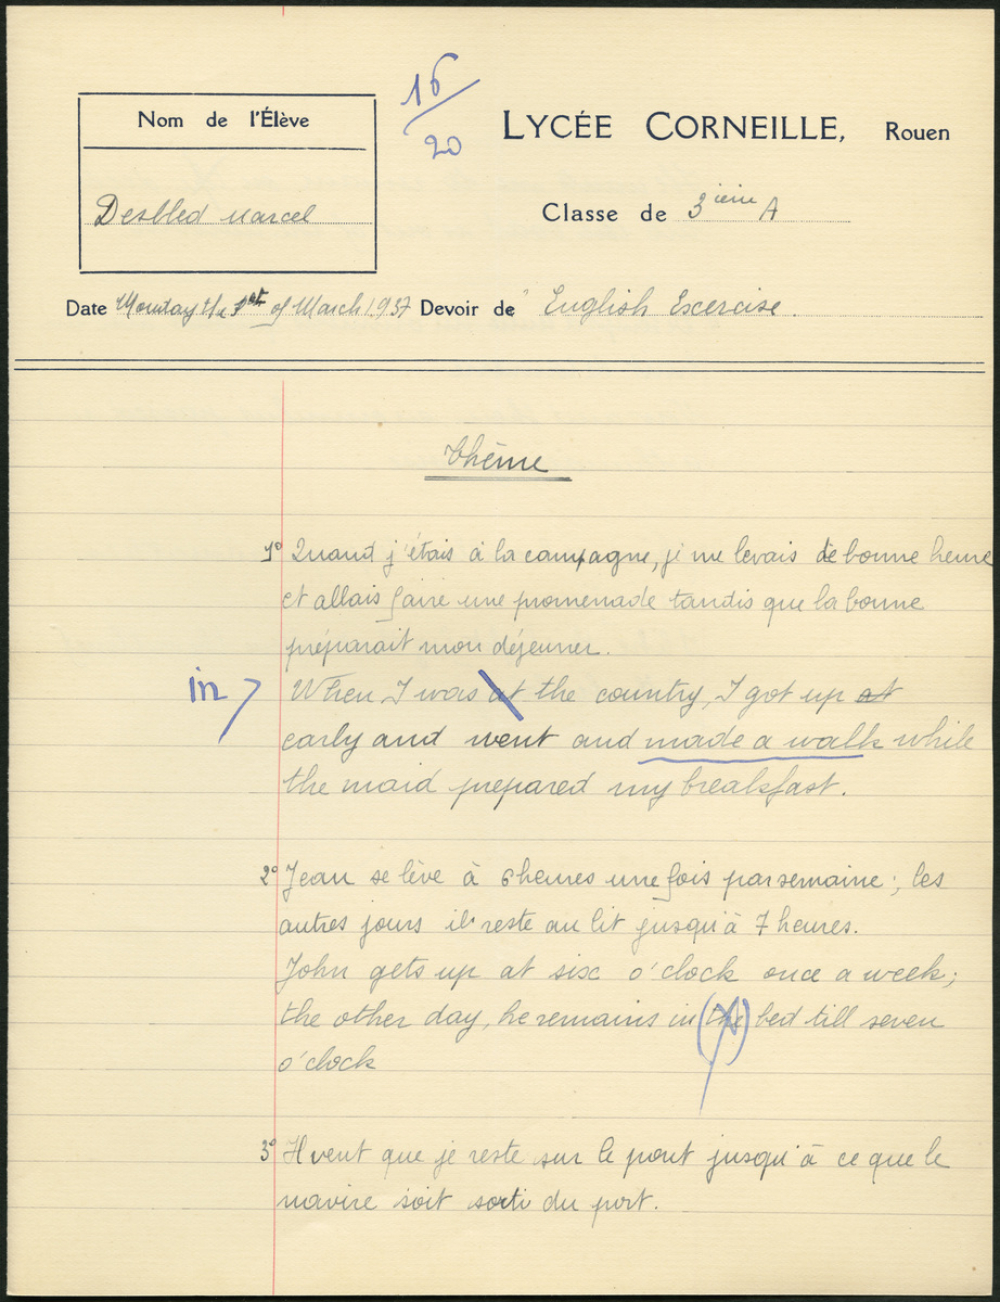 16/20
Nom de l'Élève
LYCÉE CORNEILLE, Rouen
Desbled Marcel
Classe de 3ième A
Date Monday the 1st of March 1937 Devoir de English Excercise.
Thème
1° Quand j'étais à la campagne, je me levais de bonne heure
et allais faire une promenade tandis que la bonne
préparait mon déjeuner.
in When I was at the country, I got up at
early and went and made a walk while
the maid prepared my breakfast.
2° Jean se lève à 6 heures une fois par semaine ; les
autres jours il reste au lit jusqu'à 7 heures.
John gets up at six o'clock once a week ;
the other day, he remains in (the) bed till seven
o'clock
3° Il veut que je reste sur le pont jusqu'à ce que le
navire soit sorti du port.